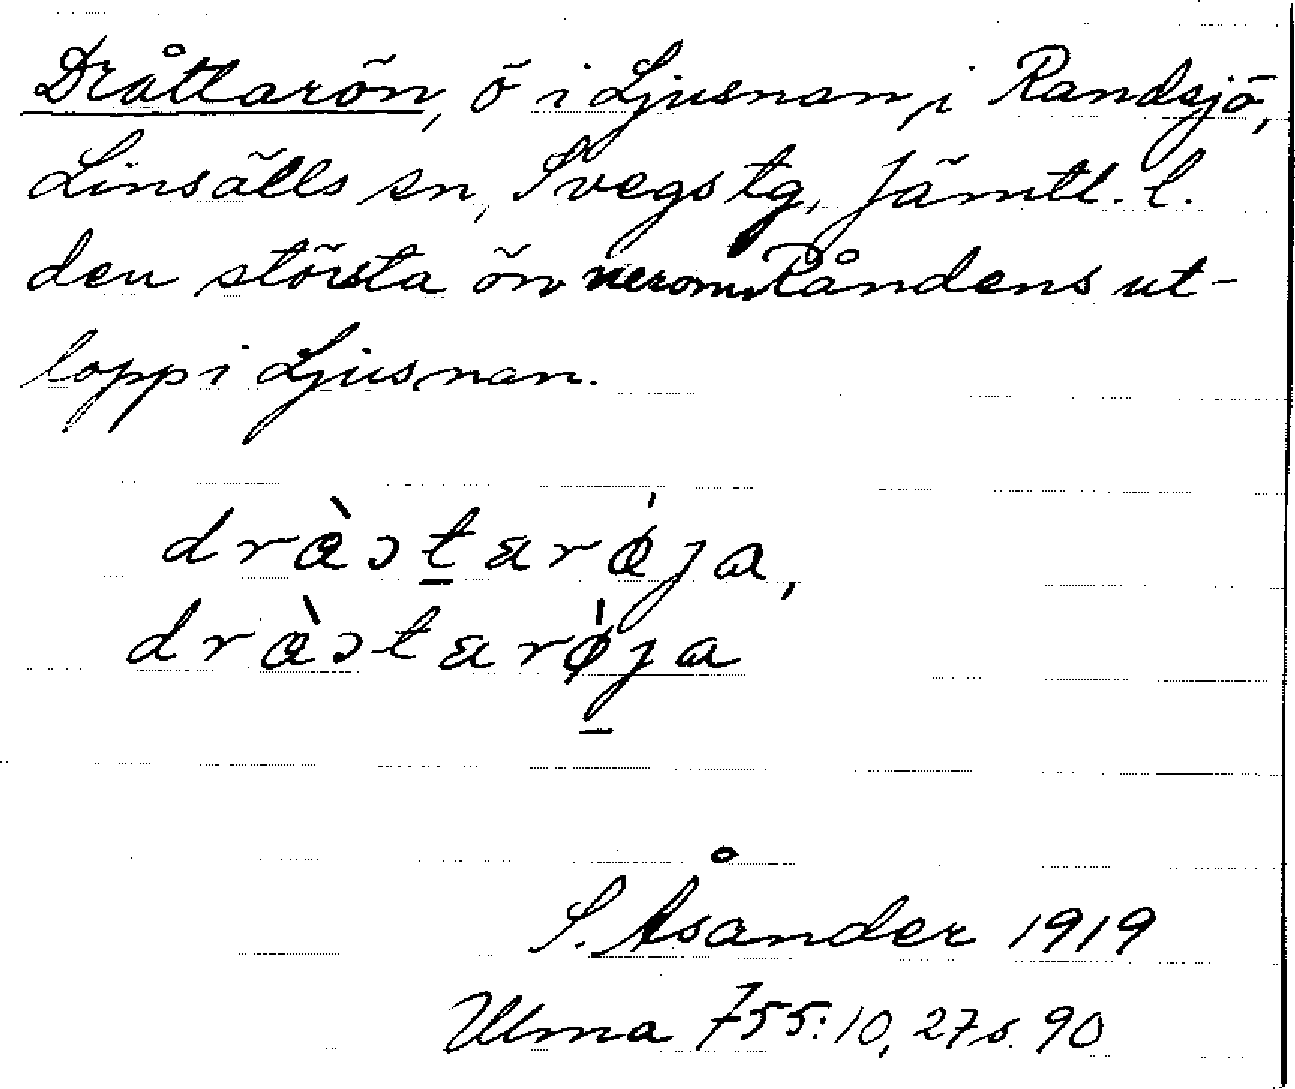 Dråttarön, ö i Ljusnan, i Randsjö,
Linsälls sn, Svegs tg, Jämtl. l.
den största ön nerom Råndens ut-
lopp i Ljusnan.
S. Åsander 1919
Ulma 755:10, 27 s. 90